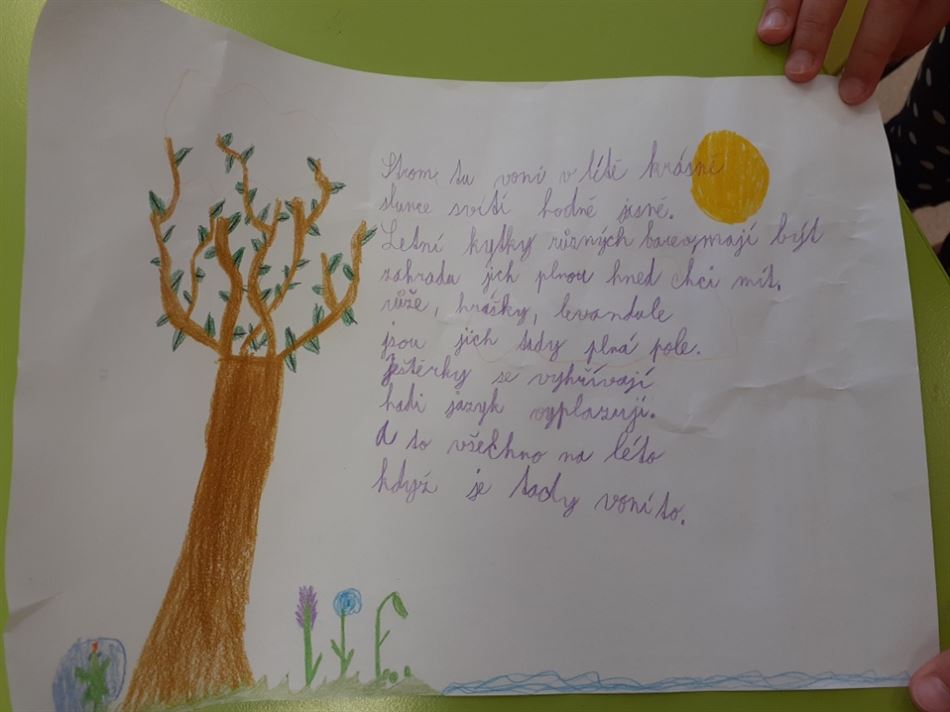 Strom tu voní v létě krásně
slunce svítí hodně jasně.
Letní kytky různých barev mají být
zahradu jich plnou hned chci mít.
růže, hrášky, levandule
jsou jich tady plná pole.
Ještěrky se vyhřívají
hadi jazyk vyplazují.
A to všechno na léto
když je tady voní to.